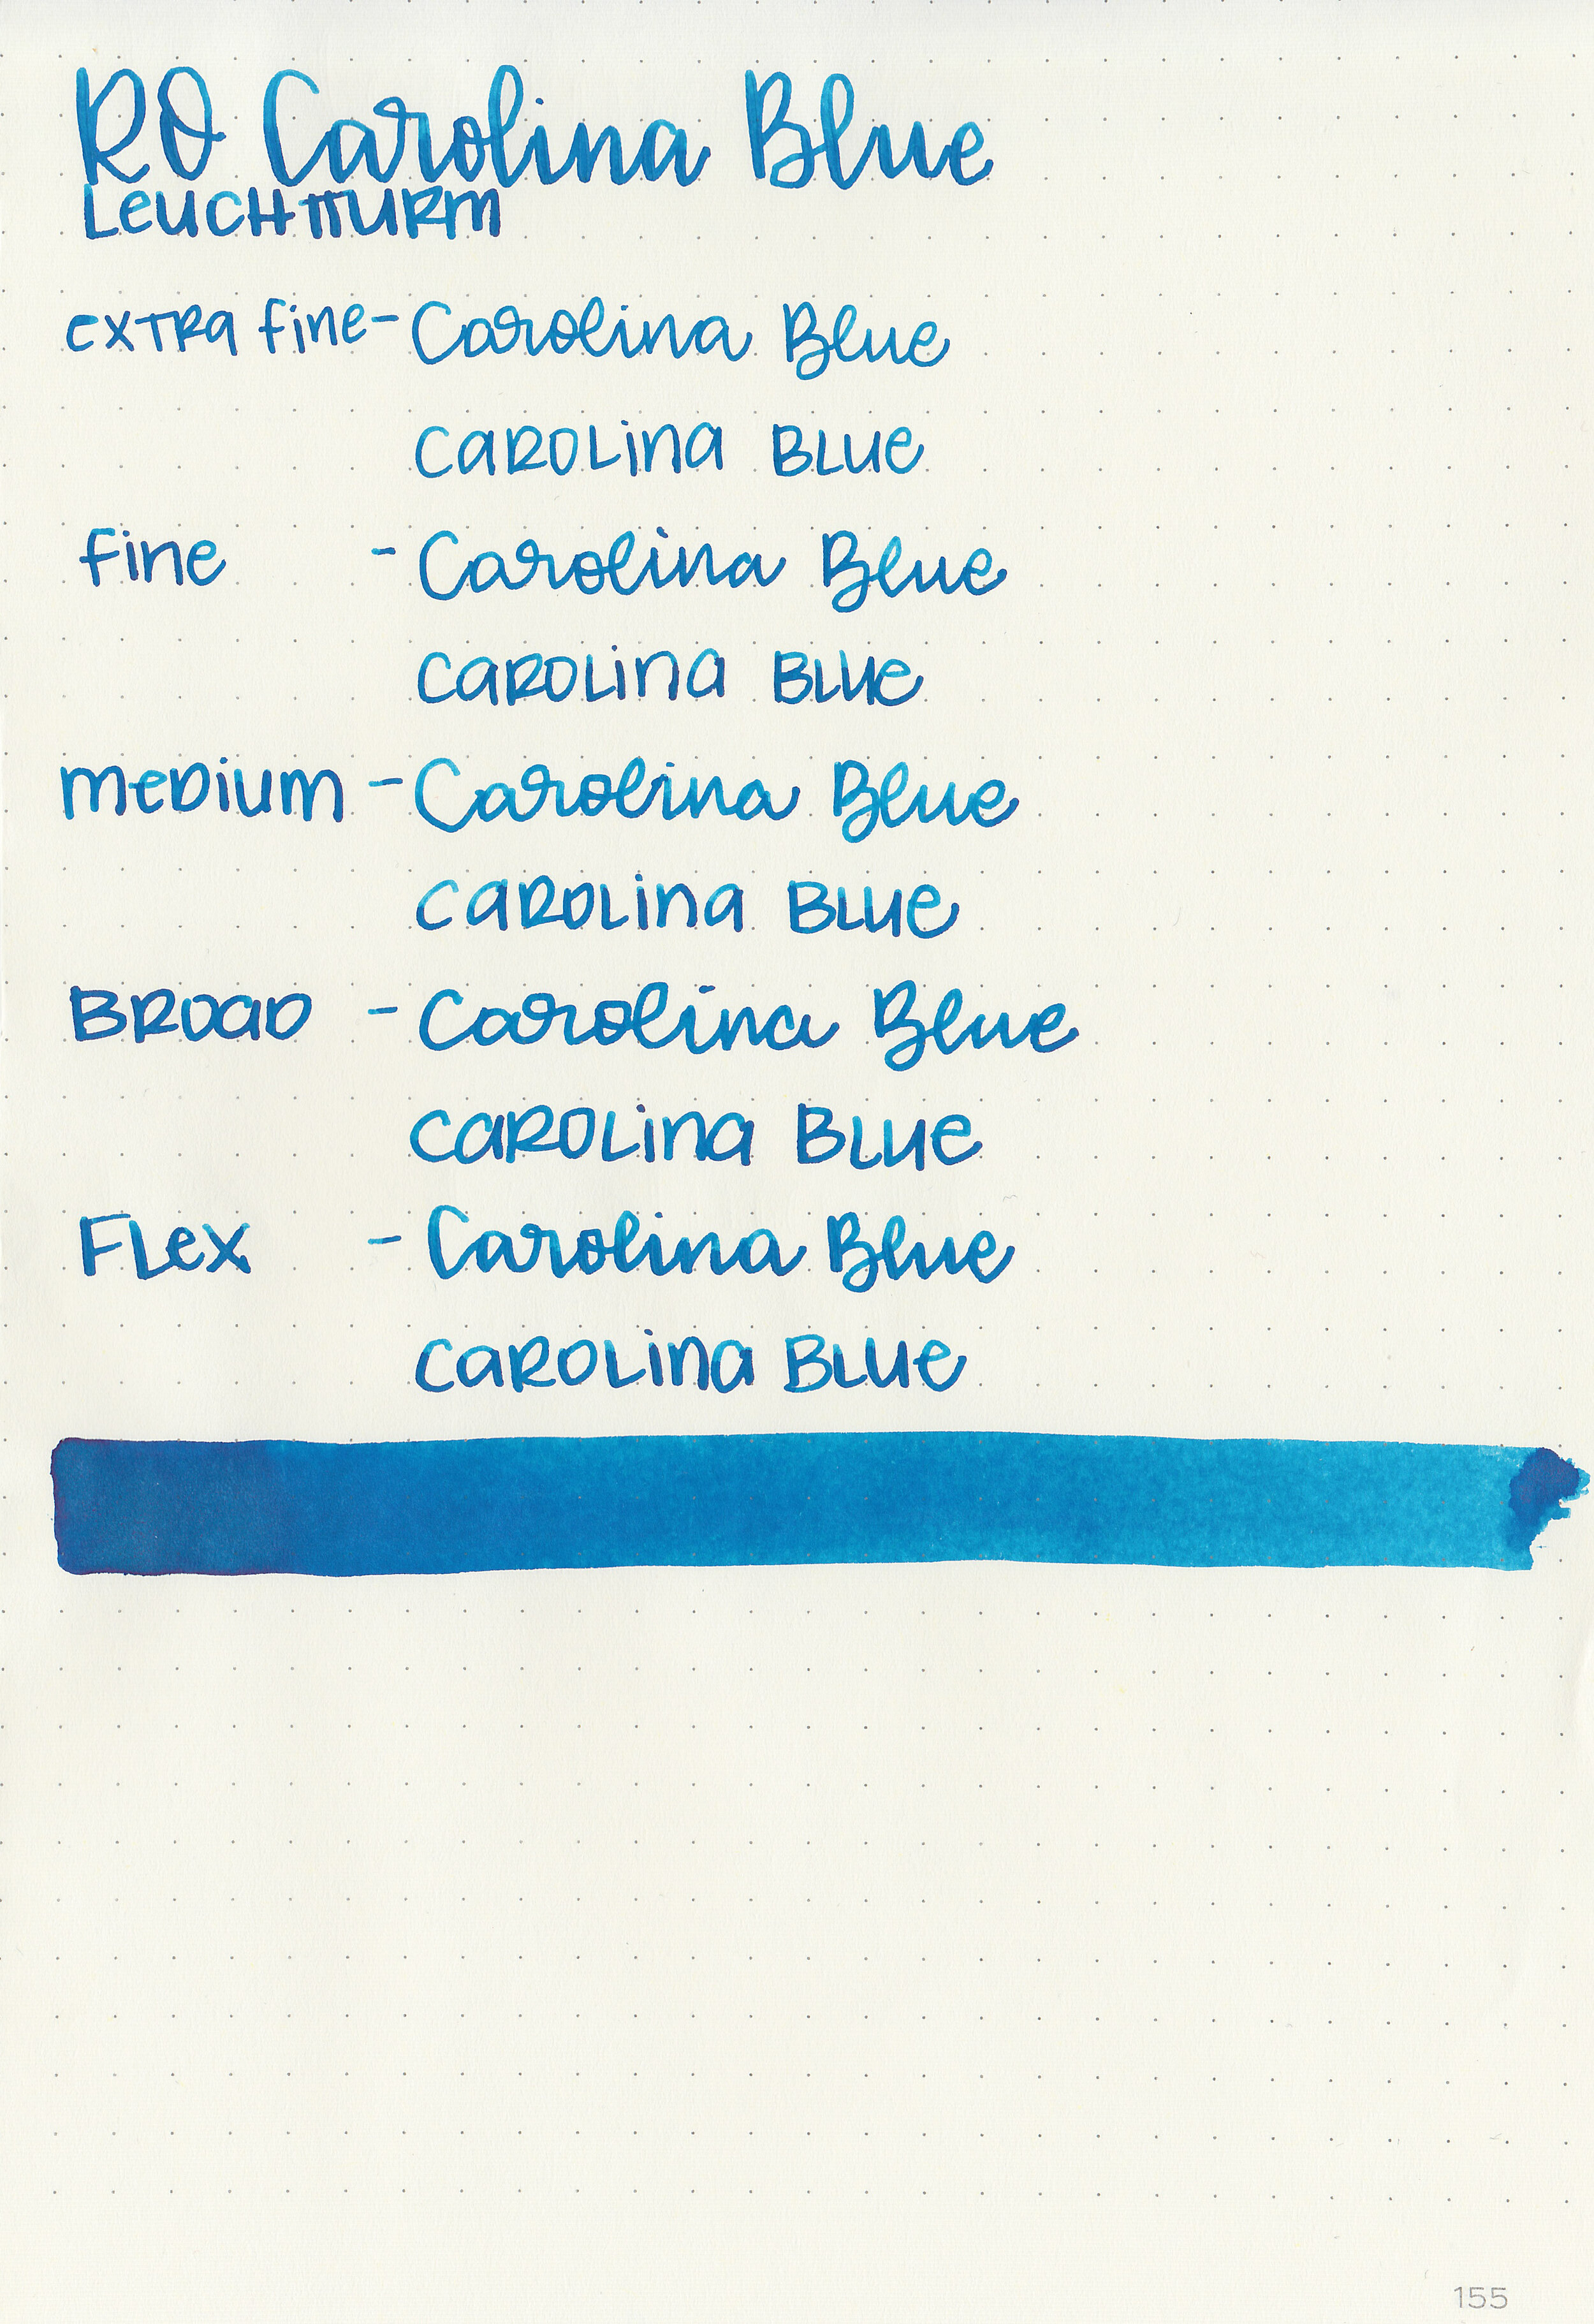 RO Carolina Blue
LEUCHTTURM
EXTRA fine - Carolina Blue
CAROLina BLUE
fine - Carolina Blue
CAROLina BLUE
meDium - Carolina Blue
CAROLina BLUE
BROaD - Carolina Blue
CAROLina BLUE
FLex - Carolina Blue
CAROLina BLUE
155